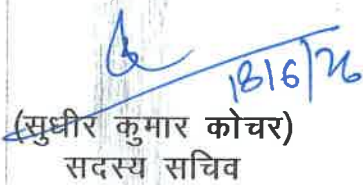 18/6/26
(सुधीर कुमार कोचर)
सदस्य सचिव